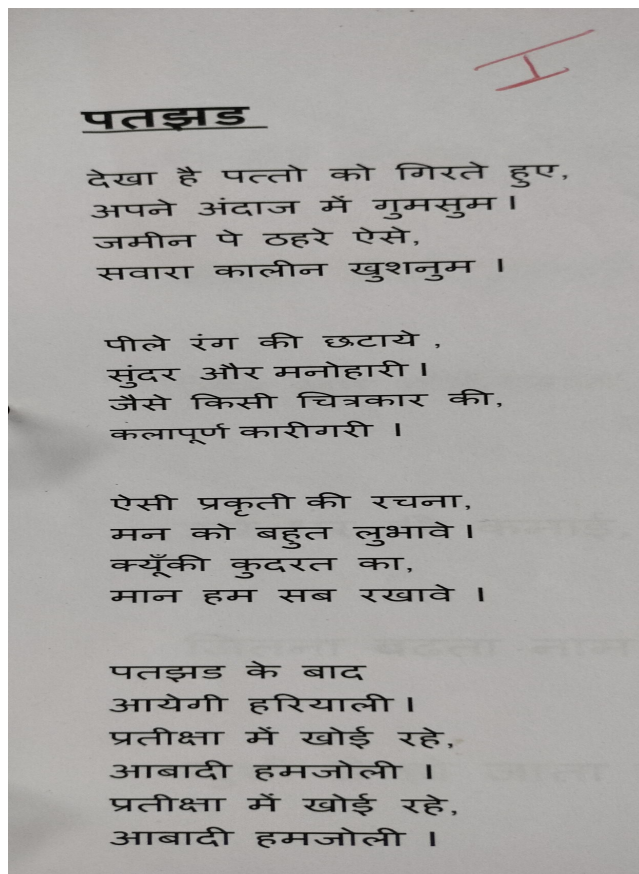 I
पतझड
देखा है पत्तो को गिरते हुए,
अपने अंदाज में गुमसुम ।
जमीन पे ठहरे ऐसे,
सवारा कालीन खुशनुम ।
पीले रंग की छटाये ,
सुंदर और मनोहारी ।
जैसे किसी चित्रकार की,
कलापूर्ण कारीगरी ।
ऐसी प्रकृती की रचना,
मन को बहुत लुभावे ।
क्यूँकी कुदरत का,
मान हम सब रखावे ।
पतझड के बाद
आयेगी हरियाली ।
प्रतीक्षा में खोई रहे,
आबादी हमजोली ।
प्रतीक्षा में खोई रहे,
आबादी हमजोली ।